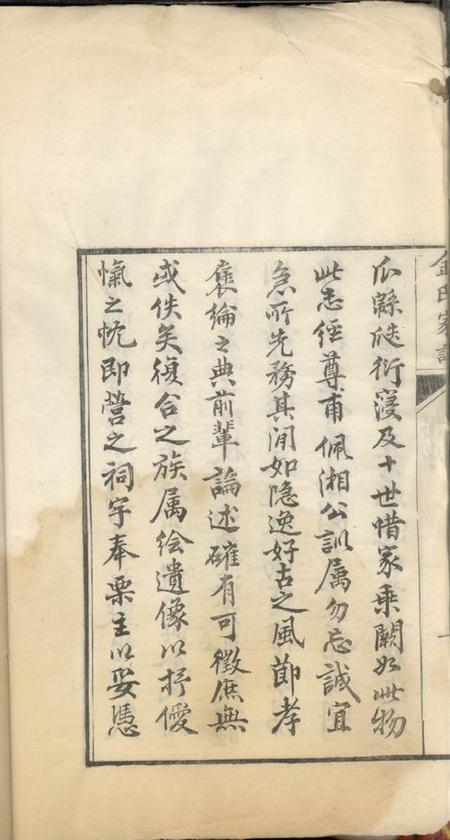 金氏家譜
瓜緜瓞衍寖及十世惜家乘闕如此物
此志經尊甫佩湘公訓属勿忘誠宜
急所先務其間如隐逸好古之風節孝
褒綸之典前輩論述確有可徵庶無
或佚矣復合之族属绘遺像以抒僾
愾之忱即营之祠宇奉栗主以妥憑